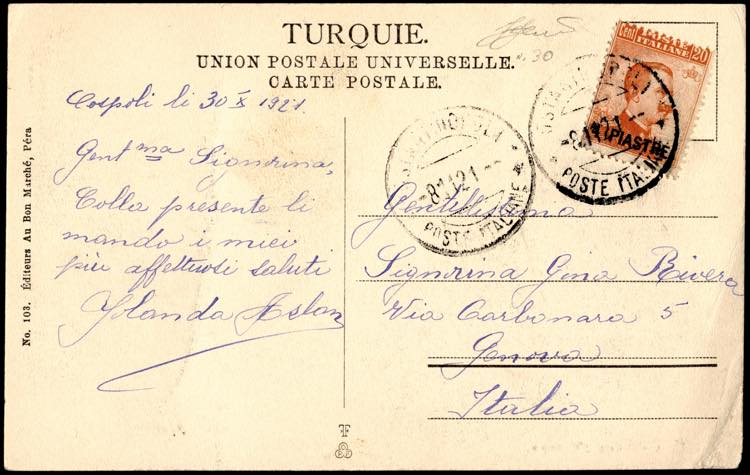 TURQUIE.
UNION POSTALE UNIVERSELLE.
CARTE POSTALE.
No. 103. Éditeurs Au Bon Marché, Péra
Cospoli li 30 X 1921.
Gent.ma Signorina,
Colla presente li
mando i miei
più affettuosi saluti
Yolanda Aslan
30
Cent 20
POSTE ITALIANE
1 PIASTRE
8.11.21
POSTE ITALIANE
8.11.21
POSTE ITALIANE
Gentilissima
Signorina Gina Rivera
Via Carbonara 5
Genova
Italia